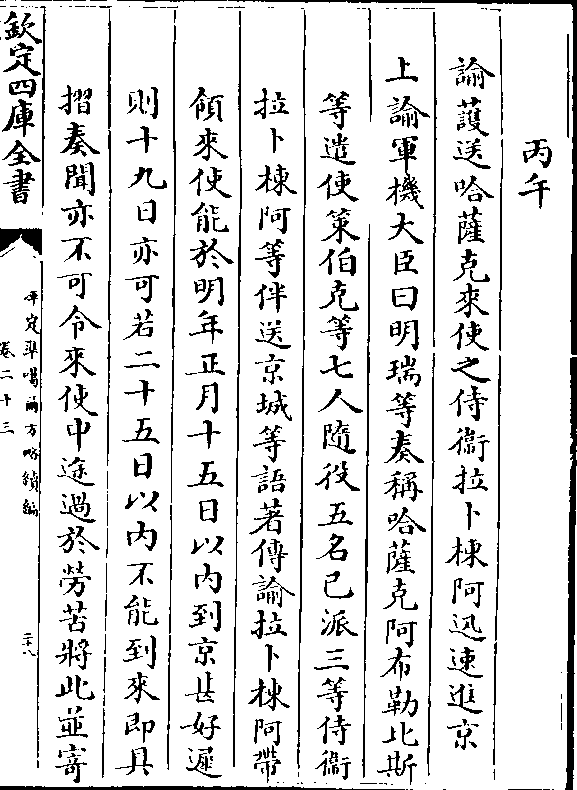 丙午
諭護送哈薩克來使之侍衛拉卜棟阿迅速進京
上諭軍機大臣曰明瑞等奏稱哈薩克阿布勒比斯
等遣使策伯克等七人隨役五名已派三等侍衛
拉卜棟阿等伴送京城等語著傳諭拉卜棟阿帶
領來使能於明年正月十五日以内到京甚好遲
則十九日亦可若二十五日以内不能到來即具
摺奏聞亦不可令來使中途過於勞苦將此並寄
欽定四庫全書
平定凖噶爾方略續編
卷二十三
二十八